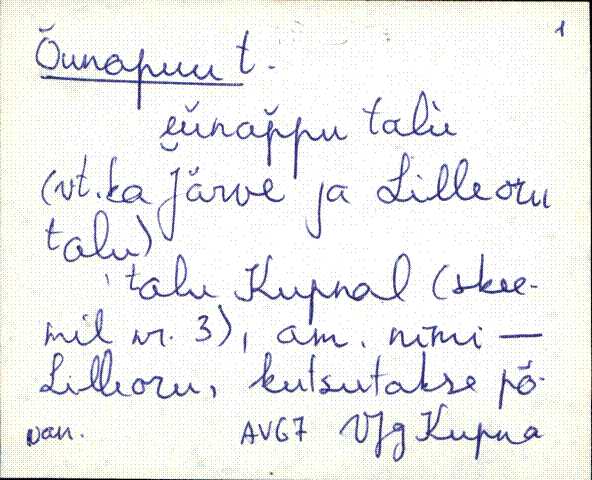 1
Õunapuu t.
eŭnap̆pu talu̇
(vt. ka Järve ja Lilleoru
talu)
talu Kupnal (skee-
mil nr. 3), am. nimi —
Lilleoru, kutsutakse põ-
van. AV67 VJg Kupna